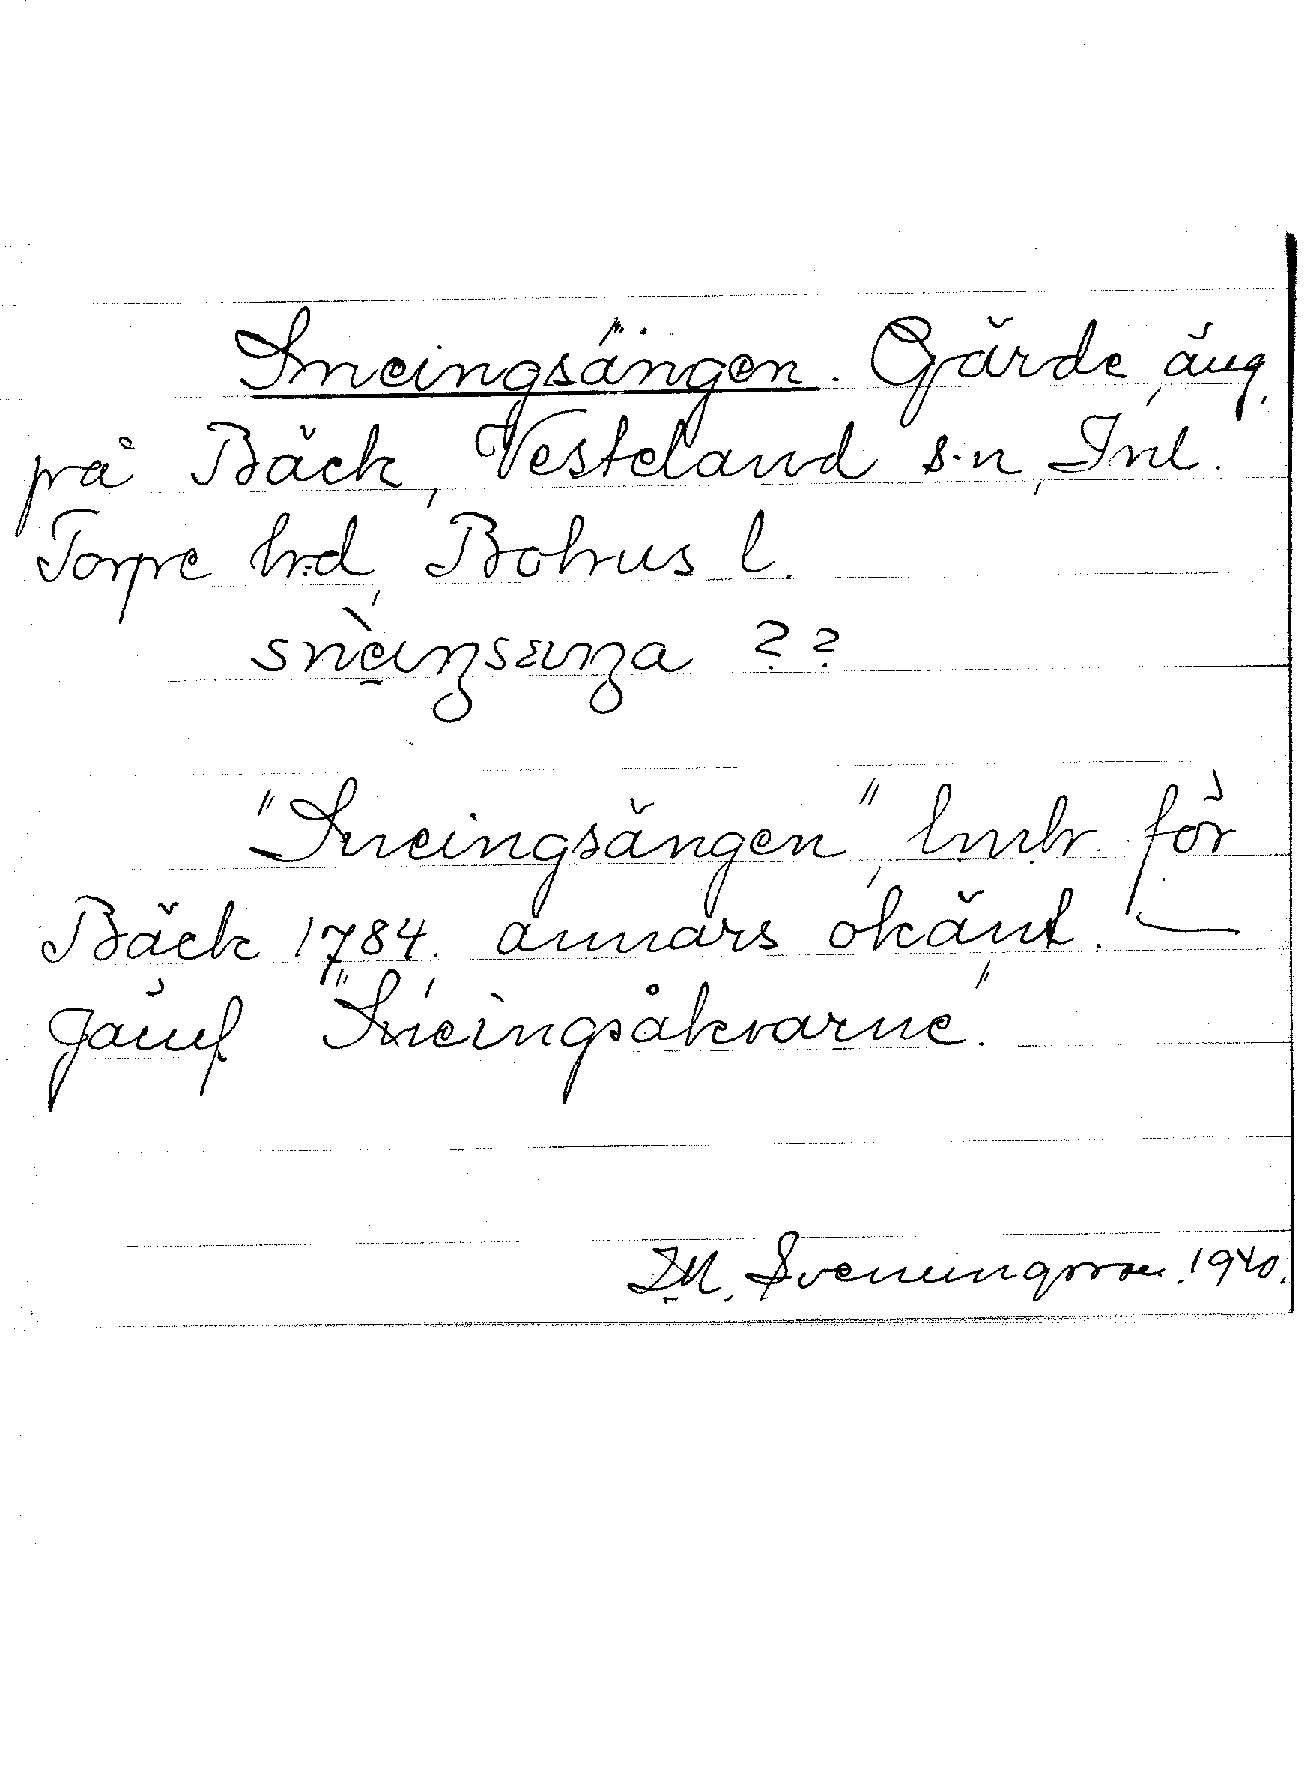 Sneingsängen. Gärde, äng,
på Bäck, Vesteland s·n, Inl.
Torpe h:d, Bohus l.
snèi̯ŋsæŋa ??
"Sneingsängen", lmh. för
Bäck 1784. annars okänt. —
Jämf. "Sneingsåkrarne".
Svenungsson 1940.